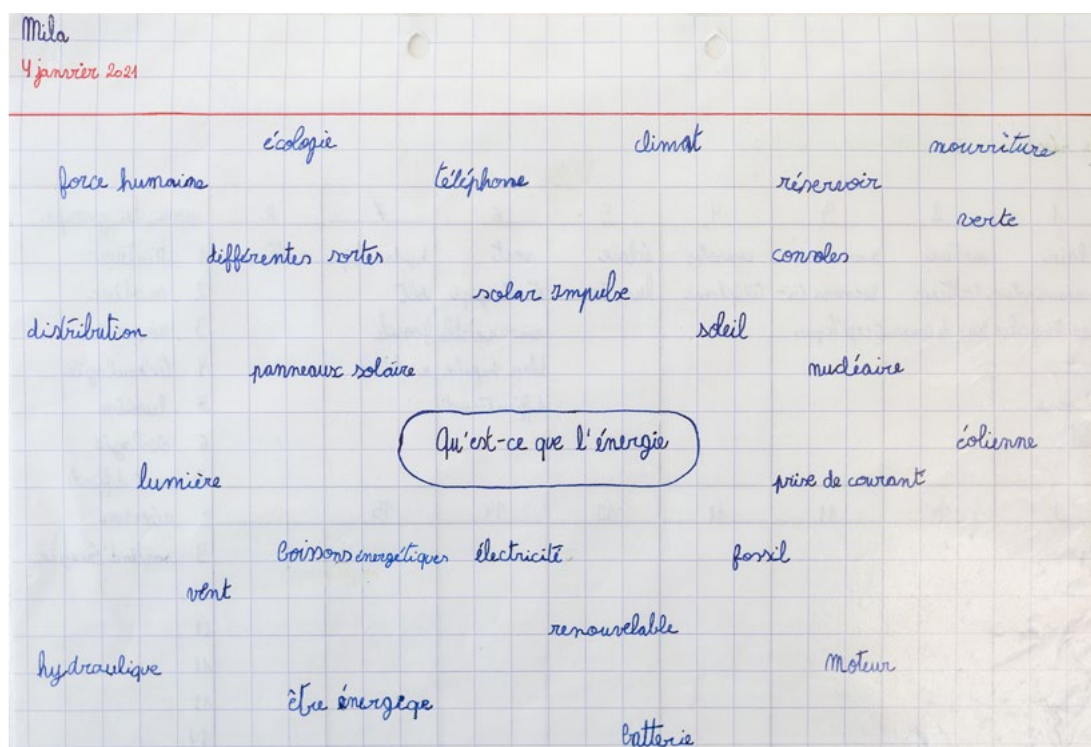 Mila
4 janvier 2021
écologie climat nourriture
force humaine téléphone réservoir
verte
différentes sortes consoles
solar Impulse
distribution soleil
panneaux solaire nucléaire
Qu'est-ce que l'énergie
éolienne
lumière prise de courant
boissons énergétiques électricité fossil
vent
renouvelable
hydraulique moteur
être énergique
batterie